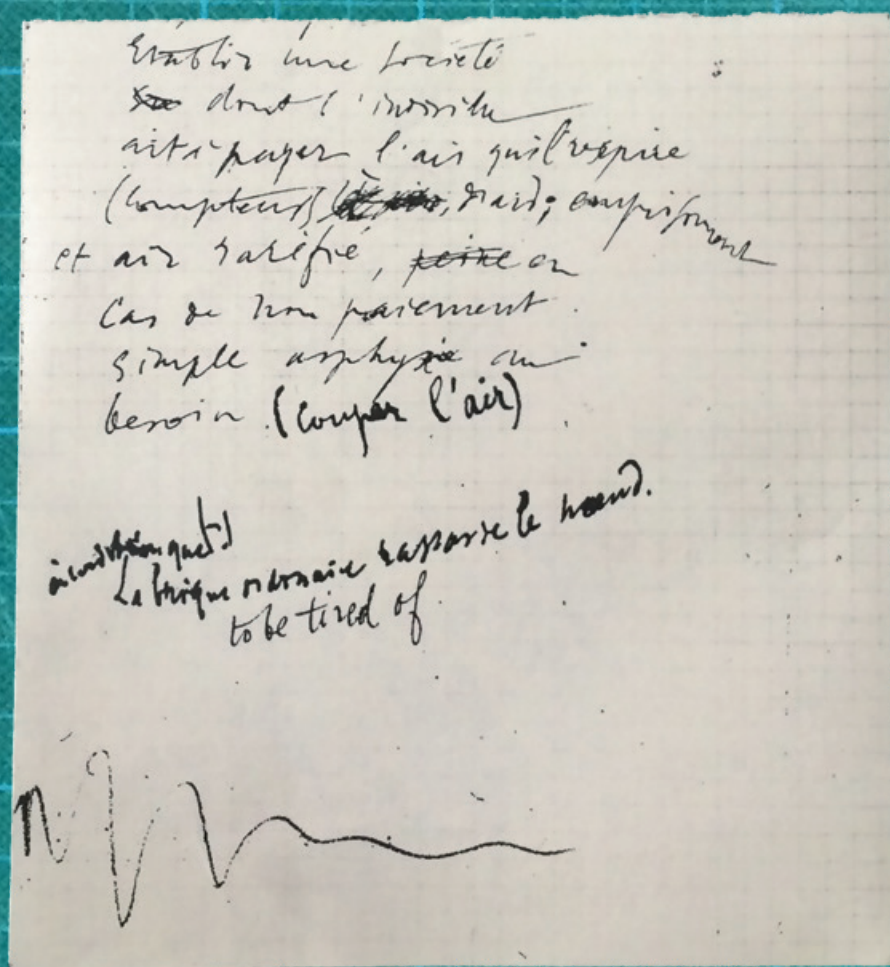 Etablir une société
dont l'individu
ait à payer l'air qu'il respire
(compteurs) ; emprisonment
et air raréfié, peine en
Cas de non paiement
simple asphyxie au
besoin (couper l'air)
à condition que
La brique ordinaire rassasie le nœud.
to be tired of